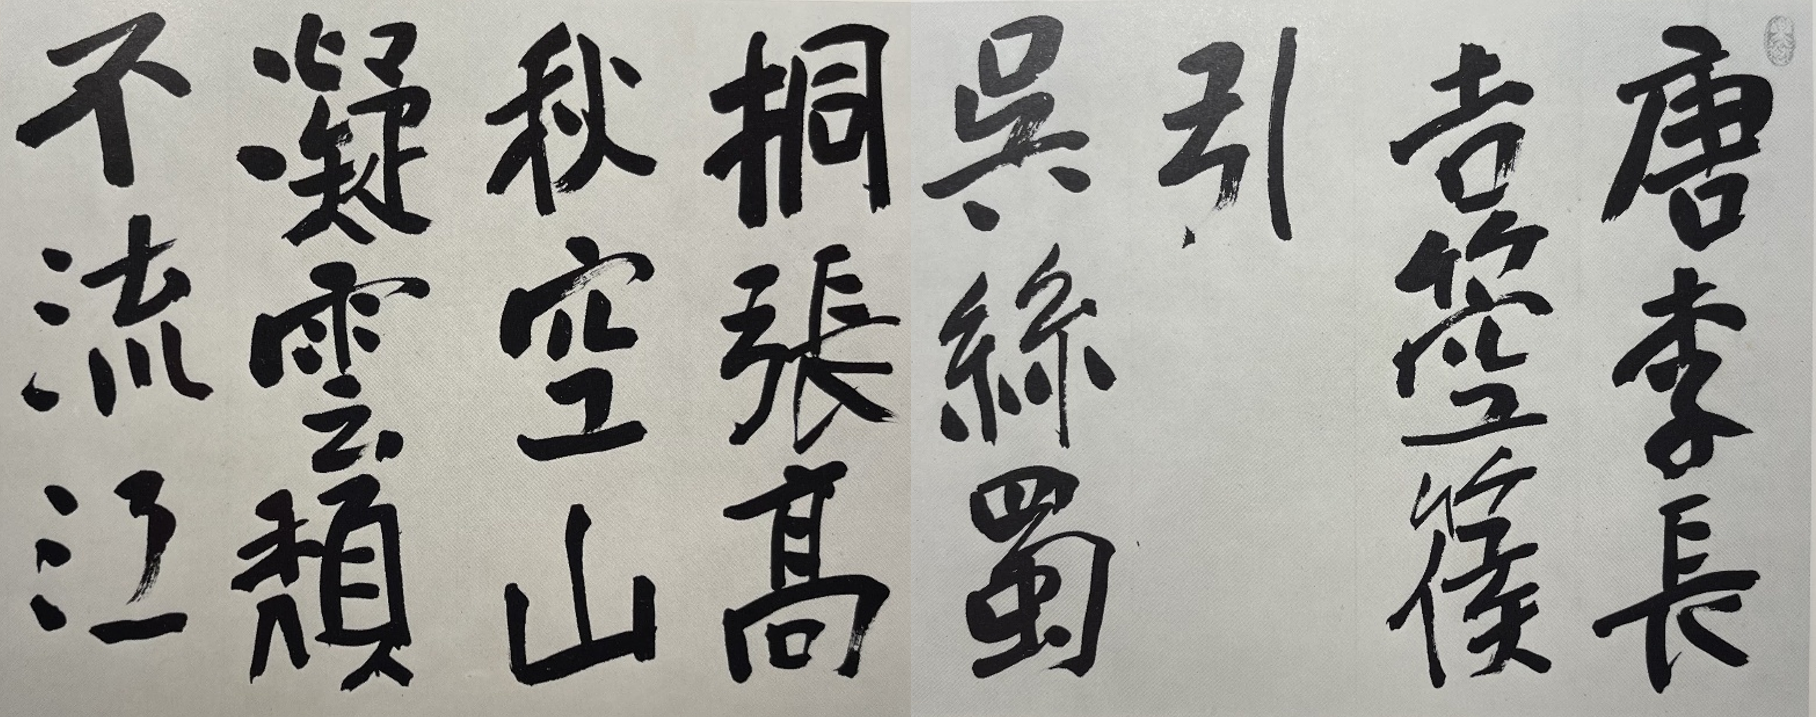 唐李長
吉箜篌
引
吳絲蜀
桐張高
秋空山
凝雲頹
不流江